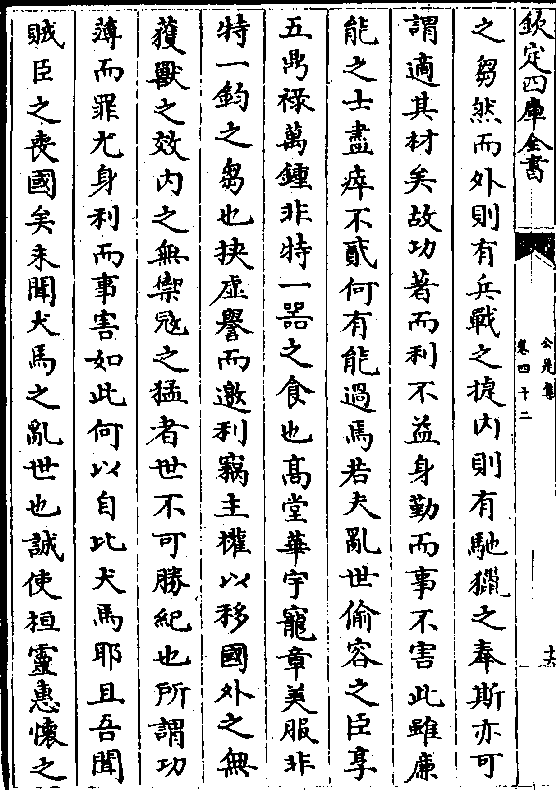 欽定四庫全書
公是集
卷四十二
之芻然而外則有兵戰之㨗内則有馳獵之奉斯亦可
謂適其材矣故功著而利不益身勤而事不害此雖廉
能之士盡瘁不貳何有能過焉若夫亂世偷容之臣享
五鼎禄萬鍾非特一器之食也髙堂華宇寵章美服非
特一鈞之芻也挟虚譽而邀利竊主權以移國外之無
獲獸之效内之無禦寇之猛者世不可勝紀也所謂功
薄而罪尤身利而事害如此何以自比犬馬耶且吾聞
賊臣之喪國矣未聞犬馬之亂世也誠使桓靈惠懷之